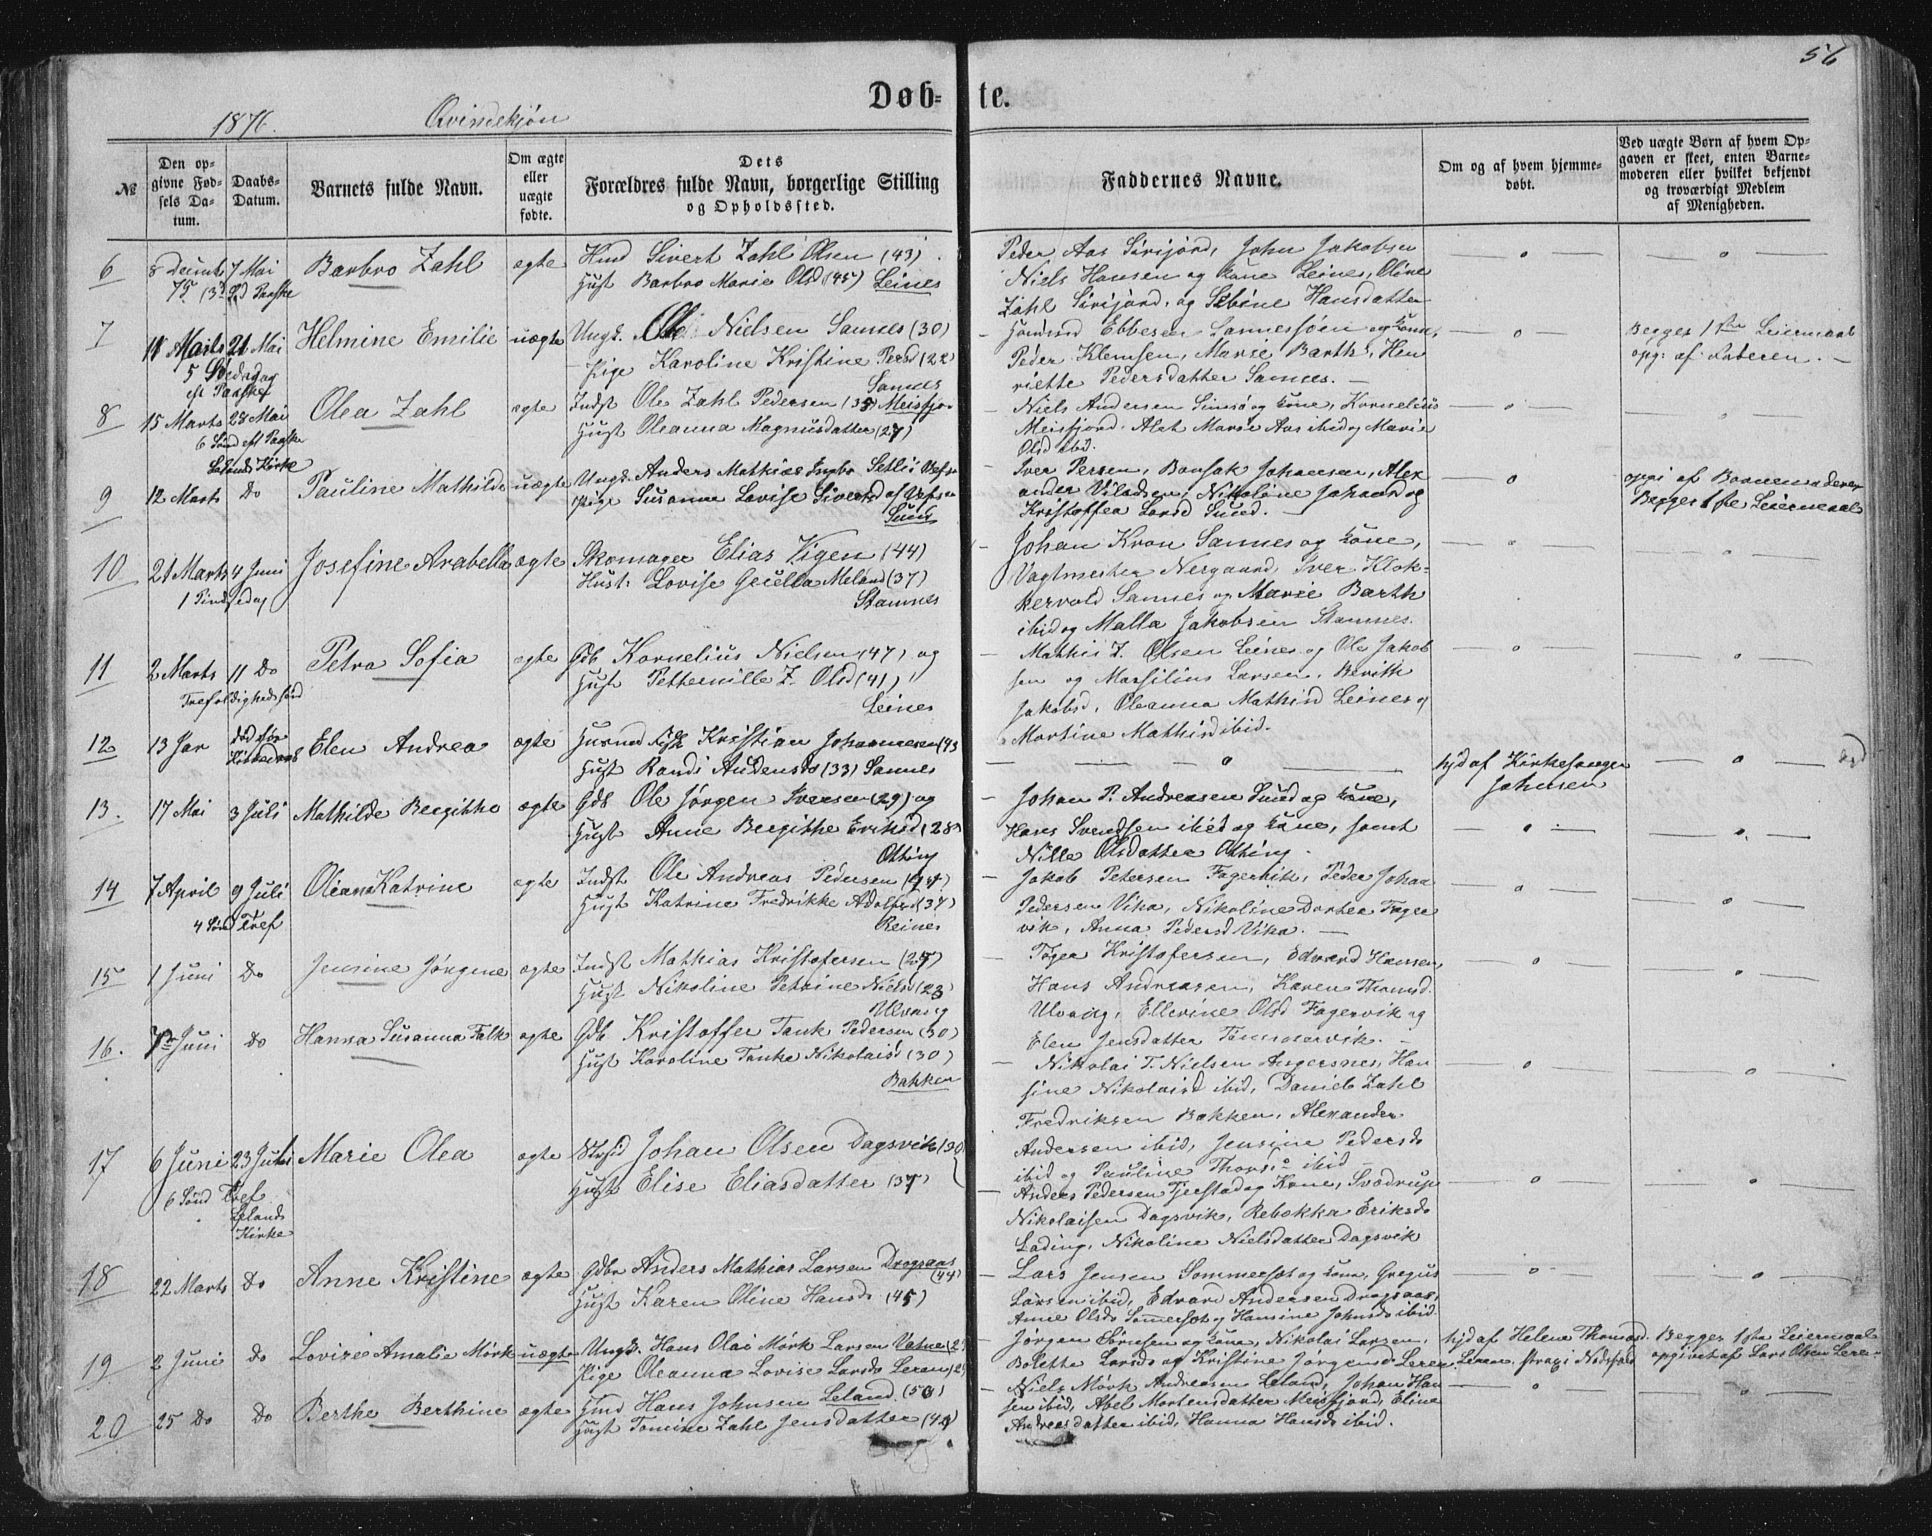 56
Døb- te.
1876. Qvindekjøn
№
Den opgivne Fødsels Datum.
Daabs-Datum.
Barnets fulde Navn.
Om ægte eller uægte fødte.
Dets Forældres fulde Navn, borgerlige Stilling og Opholdssted.
Faddernes Navne.
Om og af hvem hjemmedøbt.
Ved uægte Børn af hvem Opgaven er skeet, enten Barnemoderen eller hvilket bekjendt og troværdigt Medlem af Menigheden.
6 8 Decemb 75 7 Mai 3 Sd Paaske Barbro Zahl ægte Hmd Sivert Zahl Olsen (43)
Hust Barbro Marie Olsd (45) Leines
Peder Aas Sirijord, John Jakobsen
Niels Hansen og Kone Leines, Oline
Zahl Sirijord, og Sibine Hansdatter
7 11 Marts 21 Mai Helmine Emilie uægte Ungk. Ole Nielsen Sannes (30)
5 Søndag eft Paaske
Pige Karoline Kristine Persd (22
Sannes
Ebbesen Sannessøen og Kone,
Peder Klemsen, Marie Barth, Hen
riette Pedersdatter Sannes.
Begges 1ste Leiermaal
opg: af Faderen.
8 15 Marts 28 Mai Olea Zahl ægte Indst Ole Zahl Pedersen (35) Meisfjor
6 Sønd eft Paaske
Lelands Kirke
Hust Oleanna Magnusdatter (27)
Niels Andersen Simsø og Kone, Kornelius
Meisfjord. Alet Marie Aas ibid og Marie
Olsd ibid.
9 12 Marts Do Pauline Mathilde uægte Ungk. Anders Mathias Ingbr Setlii Vefsn
Pige Susanne Lovise Sivertsd af Vefsn
Sund
Iver Persen, Bonsak Johansen, Alex
ander Viladsen, Nikoline Johansd og
Kristoffea Larsd Sund.
opgi af Barnemoderen
Begges 1ste Leiermaal
10 21 Marts 4 Juni Josefine Arabella ægte Skomager Elias Vigen (44)
1 Pindsedag
Hust: Lovise Gecella Meland (37)
Stamnes
Johan Kron Sannes og Kone,
Vagtmester Nergaard, Iver Klok-
kervold Sannes og Marie Barth
ibid og Malla Jakobsen Stamnes.
11 2 Marts 11 Do Petra Sofia ægte Gdb Kornelius Nielsen (47) og
Trefoldighedssønd
Hust Pethernille Z. Olsd (41)
Leines
Mathis Z. Olsen Leines og Ole Jakob
sen og Marsilius Larsen, Berith
Jakobsd, Oleanna Mathisd Leines og
Martine Mathisd ibid.
12 13 Jan død før Elen Andrea ægte Husmd Kristian Johannesen (43
Hust Randi Audensd (33) Sannes
hjd af Kirkesanger
Johnsen
13. 17 Mai 3 Juli Mathilde Bergithe ægte Gdb Ole Jørgen Iversen (29) og
Hust Anne Bergithe Eriksd (28)
Otting
Johan P. Andreasen Sund og Kone,
Hans Svendsen ibid og Kone, samt
Nille Olsdatter Otting.
14 7 April 9 Juli Oleana Katrine ægte Indst Ole Andreas Pedersen (44)
4 Sønd Tref
Hust Katrine Fredrikke Adolfsd (37)
Reines
Jakob Petersen Fagervik, Peder Johan
Pedersen Vika, Nikoline Dortea Fager
vik, Anna Pedersd Vika.
15 1 Juni Do Jensine Jørgine ægte Indst Mathias Kristofersen (27)
Hust Nikoline Petrine Nielsd (23
Ulvang
Toger Kristofersen, Edvard Hansen,
Hans Andreasen, Karen Thomsd.
Ulvang, Ellevine Olsd Fagervik og
Elen Jensdatter
16. 7de Juni Do Hanna Susanna Falk ægte Gdb Kristoffer Tank Pedersen (30)
Hust Karoline Tanke Nikolaisd (30)
Bakken
Nikolai T. Nielsen Angersnes, Han
sine Nikolaisd ibid, Daniel Zahl
Fredriksen Bakken, Alexander
Andersen ibid, Jensine Pedersd
ibid og Pauline Thorsd ibid
17 6 Juni 23 Juli Marie Olea ægte Johan Olsen Dagsvik (30
6 Sønd Tref
Lelands
Kirke
Hust Elise Eliasdatter (37)
Anders Pedersen Tjerstad og Kone, Svødrup
Nikolaisen Dagsvik, Rebekka Eriksd
Lading, Nikoline Nielsdatter Dagsvik
18 22 Marts Do Anne Kristine ægte Gdbr Anders Mathias Larsen Dragsaas
(44)
Hust Karen Oline Hansd (45)
Lars Jensen Sommerset og Kone, Gregus
Larsen ibid, Edvard Andersen Dragsaas,
Anne Olsd Sommerset og Hansine Johnsd ibid
19 2 Juni Do Lovise Amalie Mørk uægte Ungk. Hans Olai Mørk Larsen Vatne
Pige Oleanna Lovise Larsd Leren
Jørgen Sørensen og Kone, Nikolai Larsen,
Bolette Larsd og Kristine Jørgensd Leren
hjd af Helene Thomasd
Leren, strax i Nødsfald
Begges 1ste Leiermaal
opgivet af Lars Olsen Leren
20 25 Do Do Berthe Berthine ægte Hmd Hans Johnsen Leland (50)
Hust Tomine Zahl Jensdatter (44)
Niels Mørk Andreasen Leland, Johan Han
sen ibid, Abel Mortensdatter Meisfjord, Eline
Andreasdatter ibid, Hanna Hansd ibid.